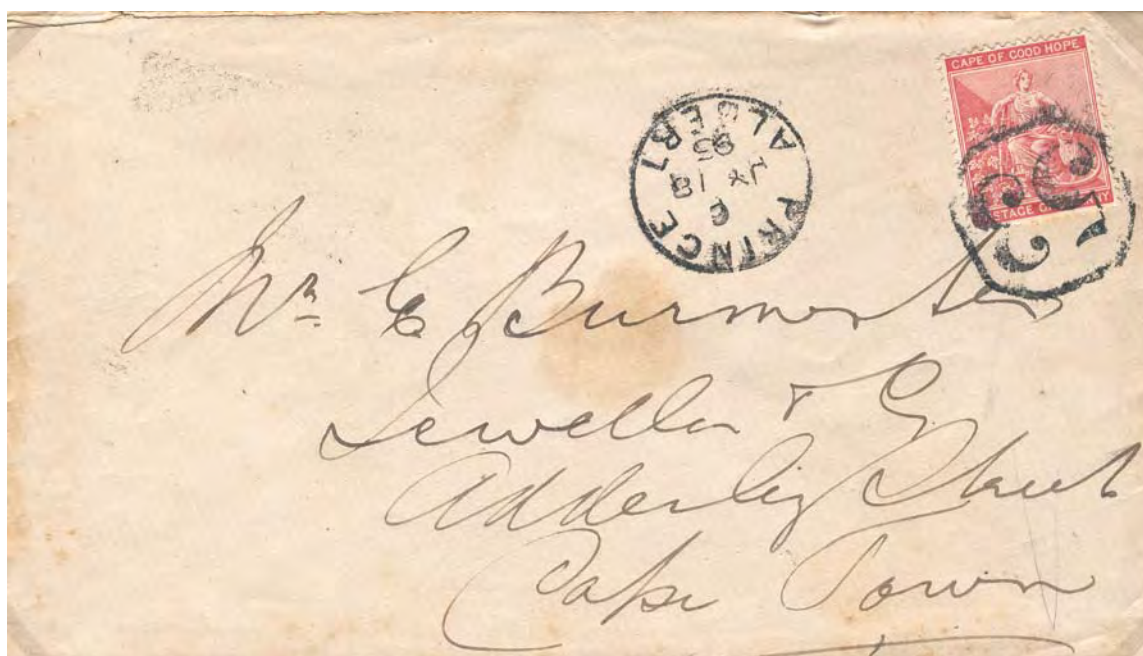 CAPE OF GOOD HOPE
PRINCE ALBERT
JY 18
95
Mr. C. Burmester
Jeweller & Co
Adderley Street
Cape Town